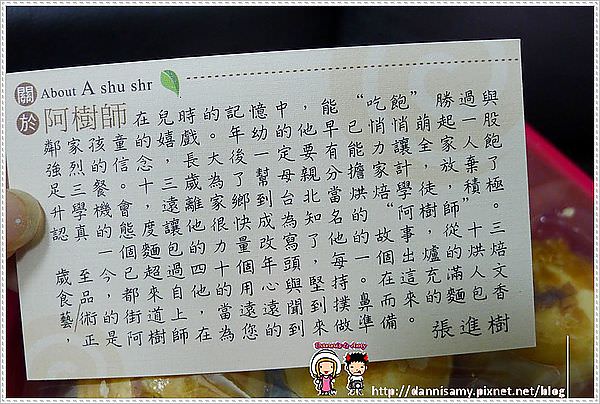 關於 About A shu shr
阿樹師在兒時的記憶中，能“吃飽”勝過與
鄰家孩童的嬉戲。年幼的他早已悄悄萌起一股
強烈的信念，長大後一定要有能力讓全家人飽
足三餐。十三歲為了幫母親分擔家計，放棄了
升學機會，遠離家鄉到台北當烘焙學徒，積極
認真的態度讓他很快成為知名的“阿樹師”。
一個麵包的力量改寫了他的故事，從十三
歲至今，已超過四十年頭，他每個出爐的烘焙
食品，都來自他的用心與堅持。在這充滿人文
藝術的街道上，當遠遠聞到撲鼻而來的麵包香，
正是阿樹師在為您的到來做準備。
張進樹
http://dannisamy.pixnet.net/blog